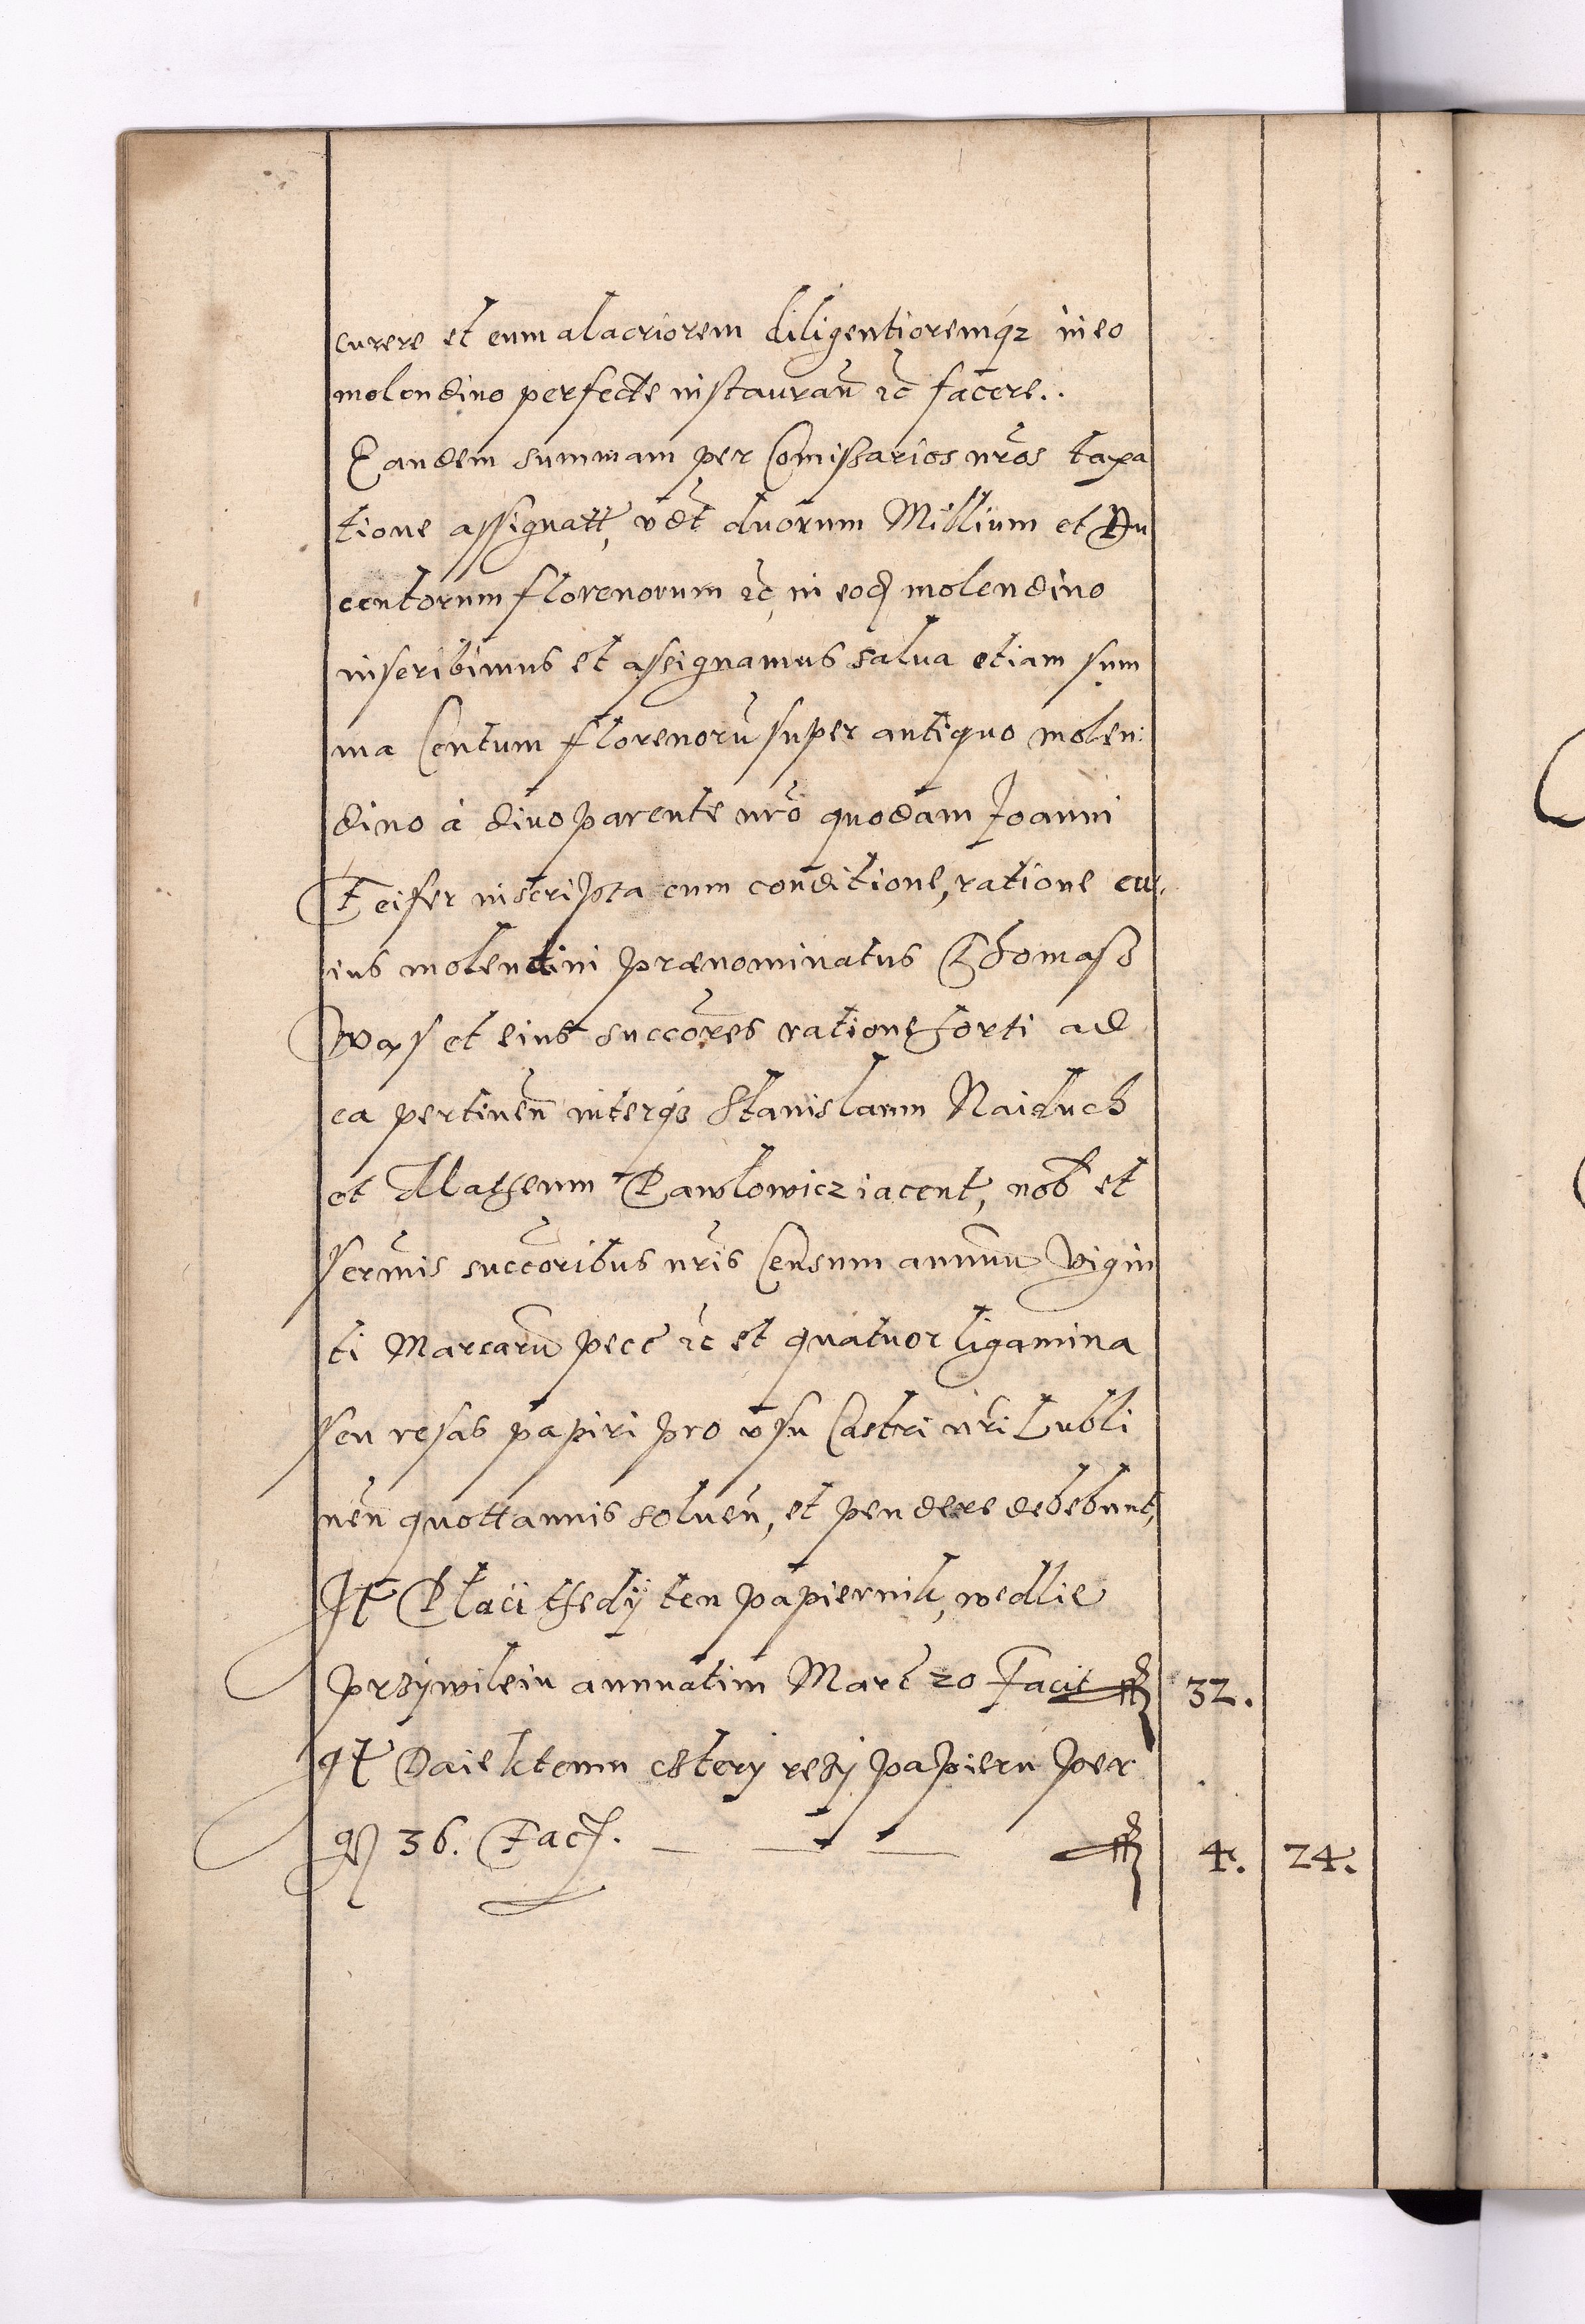 curere et eum alacriorem diligentioremq₃ in eo
molendino perfecte instauran̄ ꝛc̄ facere..
Eandem summam per Com̄issarios nr̄os taxa
tione assignatt, vdt̄ duorum Millium et Du
centorum florenorum ꝛc̄, in eod molendino
inscribimus et assignamus salua etiam sum
ma Centum florenorū super antiquo molen:
dino à diuo parente nr̄o quodam Joanni
Feifer inscripta cum conditione, ratione cu,
ius molendini prænominatus Thomass
Wax et eius succōres ratione horti ad
ea pertinen̄ interq₃ Stanislaum Naiduch
et Matheum Pawlowicz iacent, nob̄ et
sermis succ̄oribus nr̄is Censum annuū Vigin
ti Marcarū pecc̄ ꝛc̄ et quatuor ligamina
seu resas papiri pro vsu Castri nr̄i Lubli
nen̄ quottannis soluen̄, et pendere debebunt,
Jt Placi thedÿ ten papiernik, wedlie
przywileiu annuatim Marc̄ 20 Facit ff 32.
Jt Daie ktemu cztery rezy papieru per
g 36. Fact. — — — ff 4. 24.